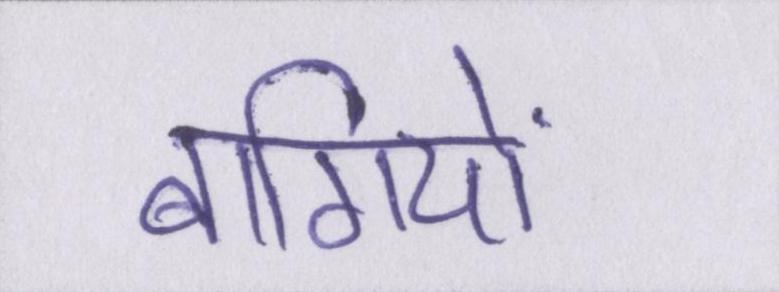 बागियों